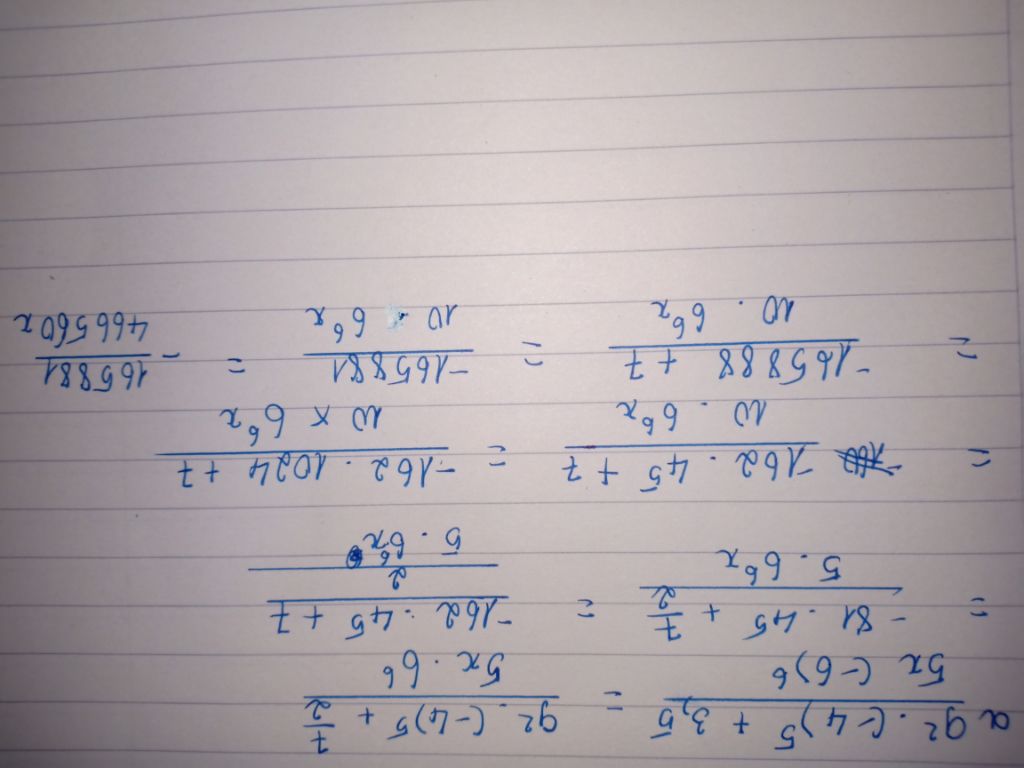 a \frac{9^2 \cdot (-4)^5 + 3,5}{5x (-6)^6} = \frac{9^2 \cdot (-4)^5 + \frac{7}{2}}{5x \cdot 6^6}
= \frac{-81 \cdot 4^5 + \frac{7}{2}}{5 \cdot 6^6 x} = \frac{\frac{-162 \cdot 4^5 + 7}{2}}{5 \cdot 6^6 x}
= \frac{-162 \cdot 4^5 + 7}{10 \cdot 6^6 x} = \frac{-162 \cdot 1024 + 7}{10 \times 6^6 x}
= \frac{-165888 + 7}{10 \cdot 6^6 x} = \frac{-165881}{10 \cdot 6^6 x} = - \frac{165881}{466560x}